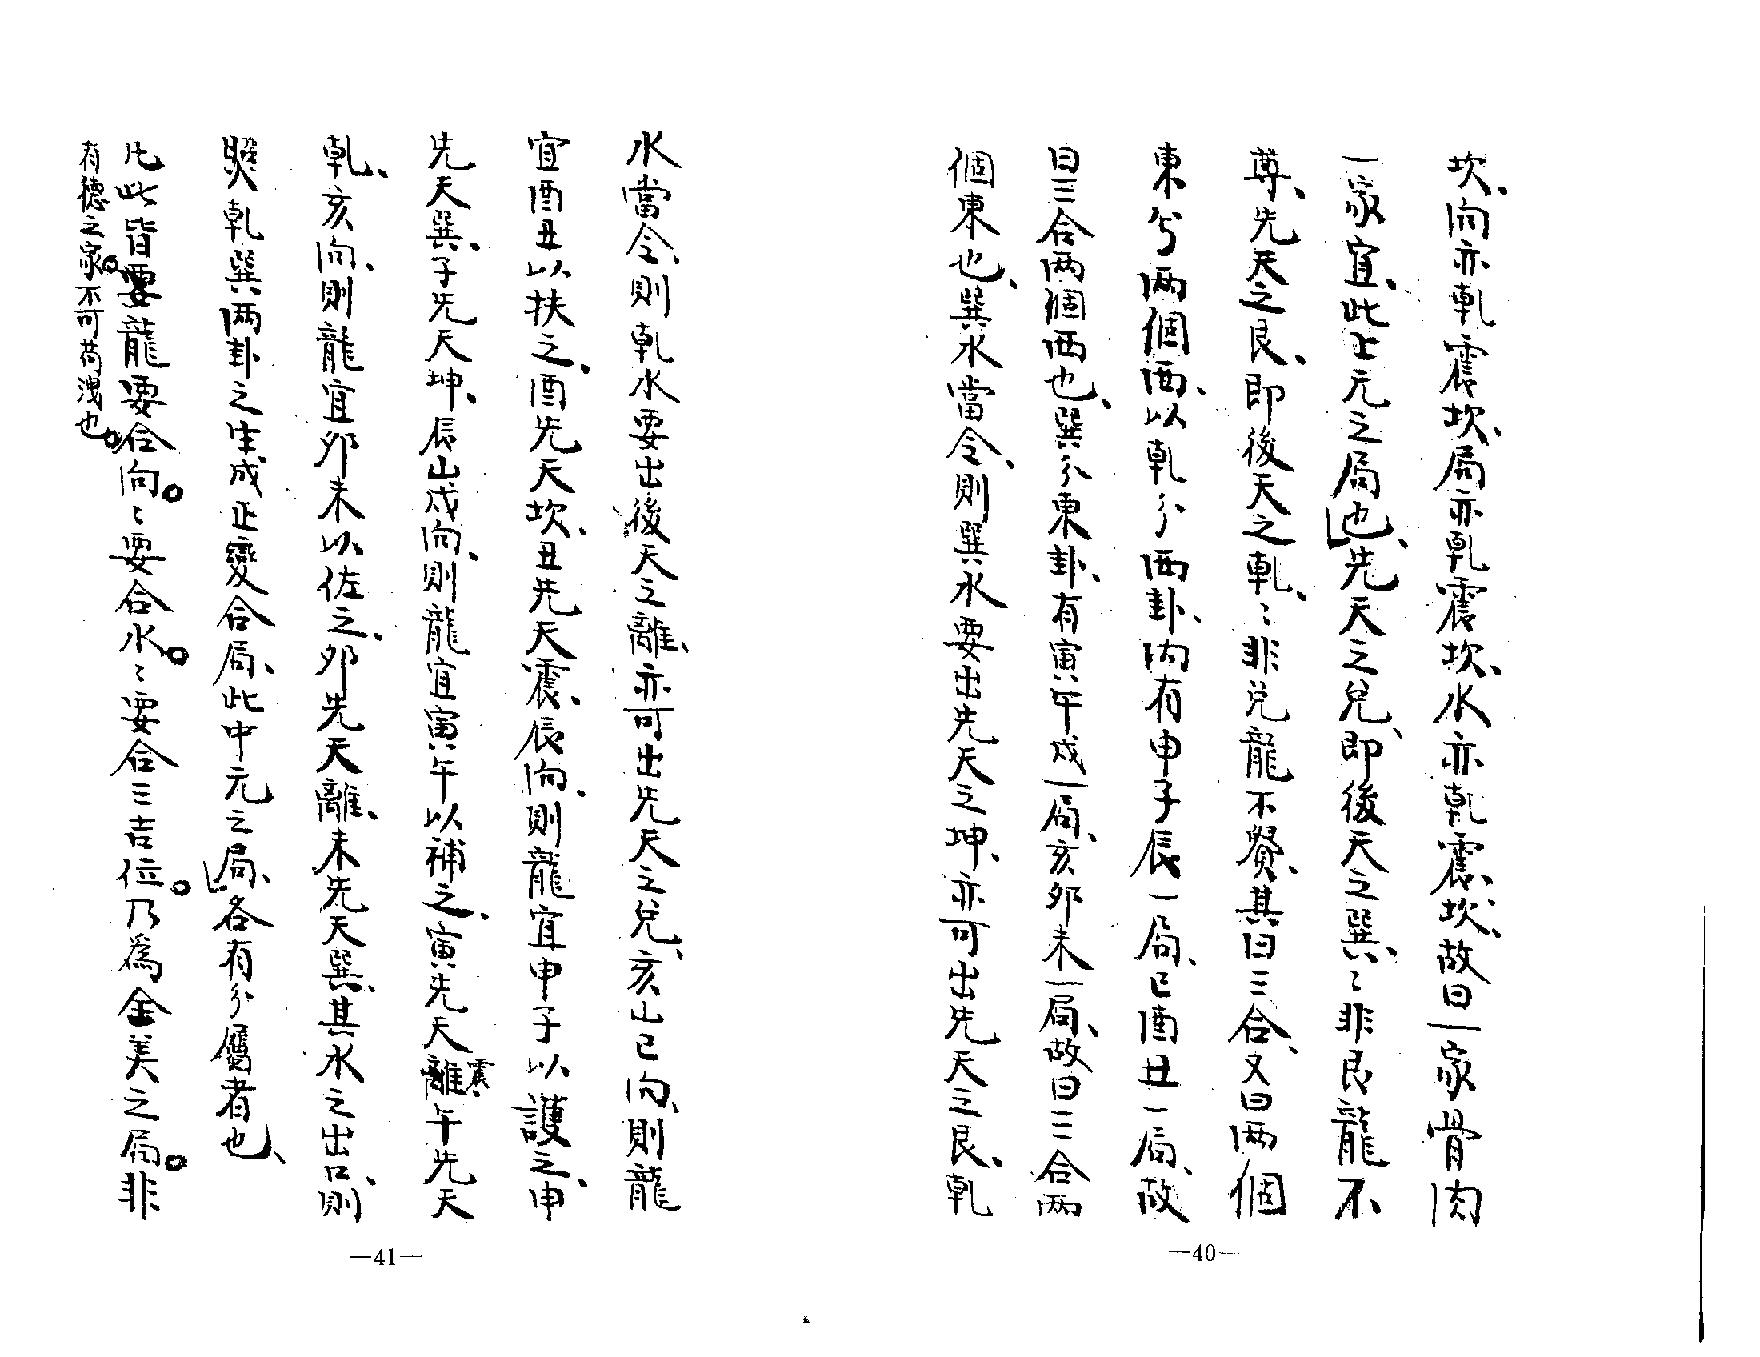 坎、向亦乹震坎、局亦乹震坎、水亦乹震、坎、故曰一家骨肉
一家宜、此上元之局也、先天之兌、即後天之巽、〻非艮龍不
尊、先天之艮、即後天之乹、〻非兌龍不贒、其曰三合、又曰两個
東兮两個西、以乹分西卦、内有申子辰一局、巳酉丑一局、故
曰三合两個西也、巽分東卦、有寅午戍一局、亥夘未一局、故曰三合两
個東也、巽水當令、則巽水要出先天之坤、亦可出先天之艮、乹
—40—
水當令、則乹水要出後天之離、亦可出先天之兌、亥山巳向、則龍
宜酉丑以扶之、酉先天坎、丑先天震、辰向、則龍宜申子以護之、申
先天巽、子先天坤、辰山戍向、則龍宜寅午以補之、寅先天離震、午先天
乹、亥向、則龍宜夘未以佐之、夘先天離、未先天巽、其水之出口、則
照乹巽两卦之生成正變合局、此中元之局、各有分屬者也、
凢此皆要龍要合向。〻要合水。〻要合三吉位。乃為全美之局。非
有德之家。不可苟洩也。
—41—